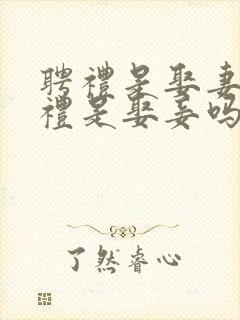 聘禮是娶妻
禮是娶妾吗
了然睿心